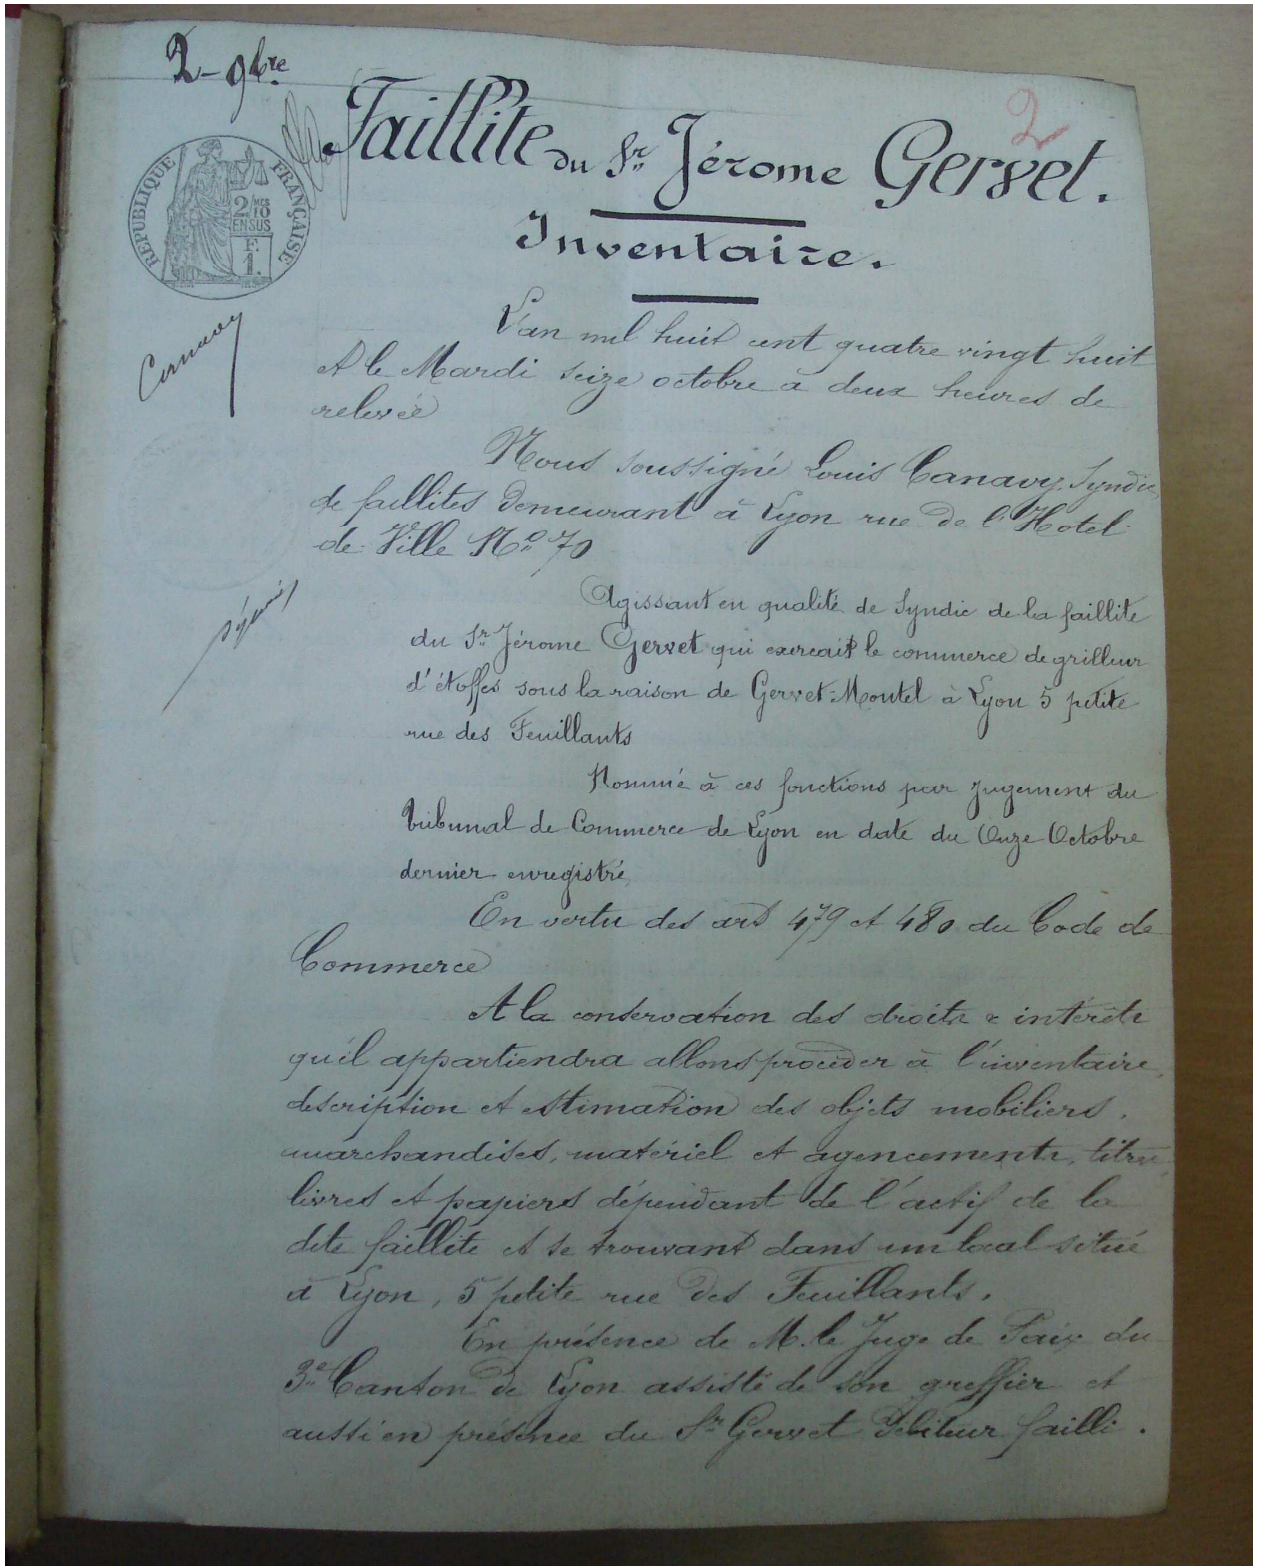 2 - 9bre
2
Faillite du Sr Jérome Gervet.
RÉPUBLIQUE FRANÇAISE
2/10 MES
EN SUS
F.
1.
Inventaire.
L'an mil huit cent quatre vingt huit
et le Mardi seize octobre à deux heures de
relevée
Nous soussigné Louis Canavy Syndic
de faillites demeurant à Lyon rue de l'Hotel
de Ville No 70
Agissant en qualité de Syndic de la faillite
du Sr Jérome Gervet qui exercait le commerce de grilleur
d'étoffes sous la raison de Gervet-Montel à Lyon 5 petite
rue des Feuillants
Nommé à ces fonctions par jugement du
Tribunal de Commerce de Lyon en date du Onze Octobre
dernier enregistré
En vertu des art 479 et 480 du Code de
Commerce
A la conservation des droits & intérêts
qu'il appartiendra allons procéder à l'inventaire,
description et estimation des objets mobiliers,
marchandises, matériel et agencements, titres,
livres et papiers dépendant de l'actif de la
dite faillite et se trouvant dans un local situé
à Lyon, 5 petite rue des Feuillants.
En présence de M. le Juge de Paix du
3e Canton de Lyon assisté de son greffier et
aussi en présence du Sr Gervet débiteur failli.